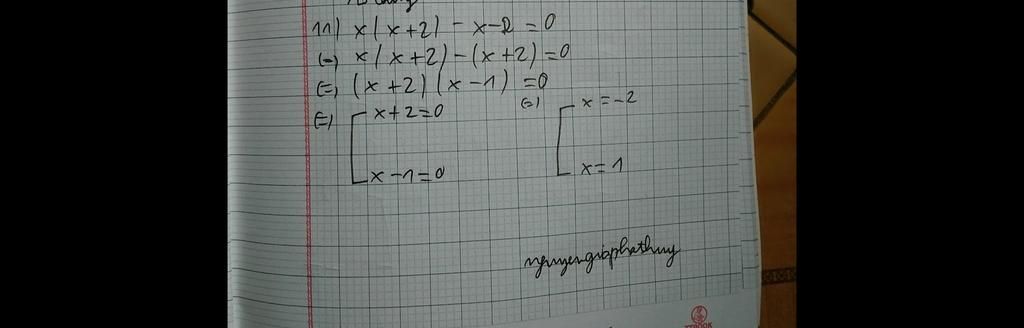 11) x(x+2) - x-2 = 0
(=) x(x+2)-(x+2)=0
(=) (x+2)(x-1) =0
(=) [ x+2=0 (=) [ x=-2
x-1=0 x=1
nguyengiaphathuy